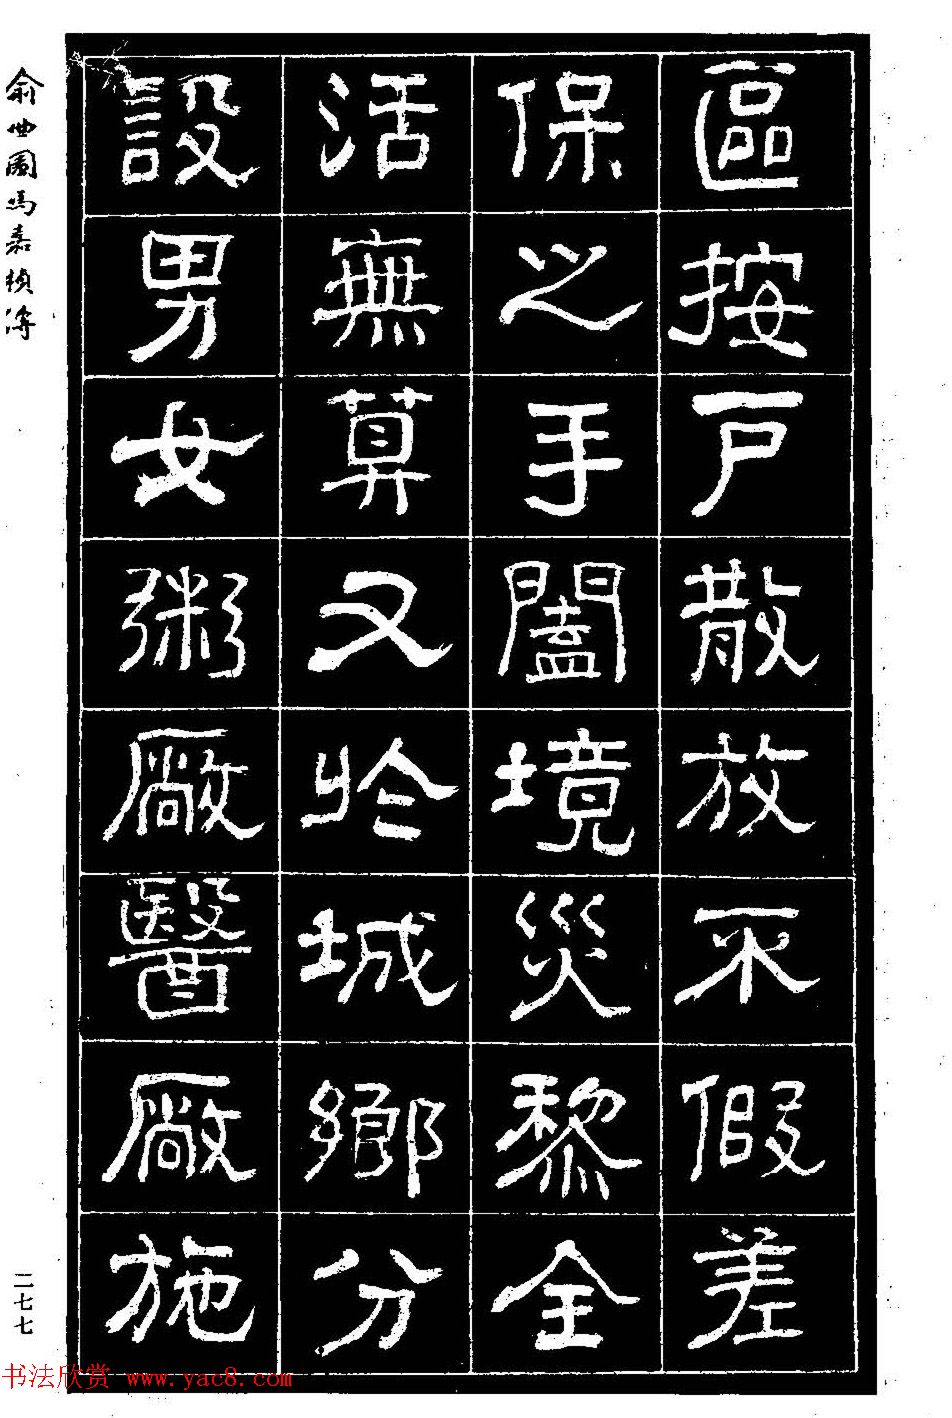 區按戶散放不假差
保之手闔境災黎全
活無算又於城鄉分
設男女粥厰醫厰施
俞曲園馮嘉楨傳
二七七
书法欣赏 www.yac8.com